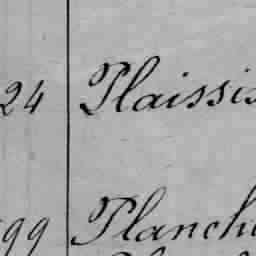 24 Plaissis
99 Planch